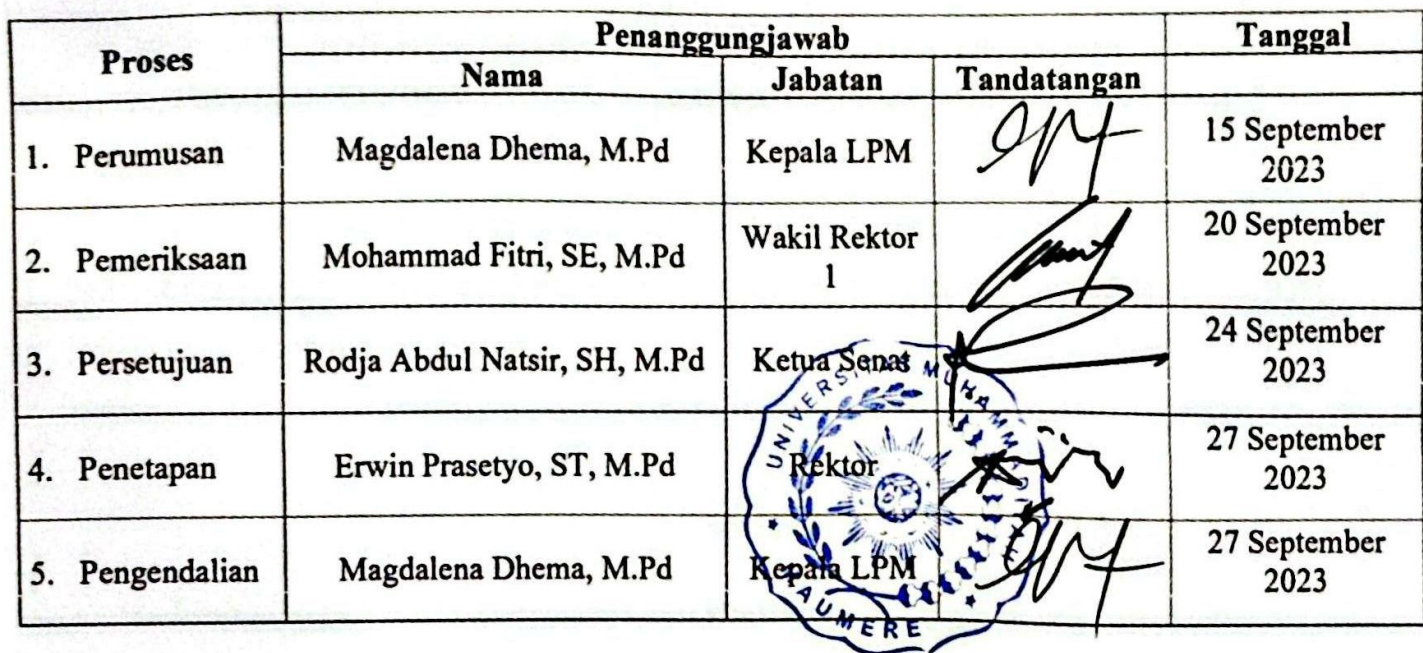 Proses Penanggungjawab Tanggal
Nama Jabatan Tandatangan
1. Perumusan Magdalena Dhema, M.Pd Kepala LPM 15 September
2023
2. Pemeriksaan Mohammad Fitri, SE, M.Pd Wakil Rektor 20 September
1 2023
3. Persetujuan Rodja Abdul Natsir, SH, M.Pd Ketua Senat 24 September
2023
4. Penetapan Erwin Prasetyo, ST, M.Pd Rektor 27 September
2023
5. Pengendalian Magdalena Dhema, M.Pd Kepala LPM 27 September
2023
UNIVERSITAS MUHAMMADIYAH
MAUMERE